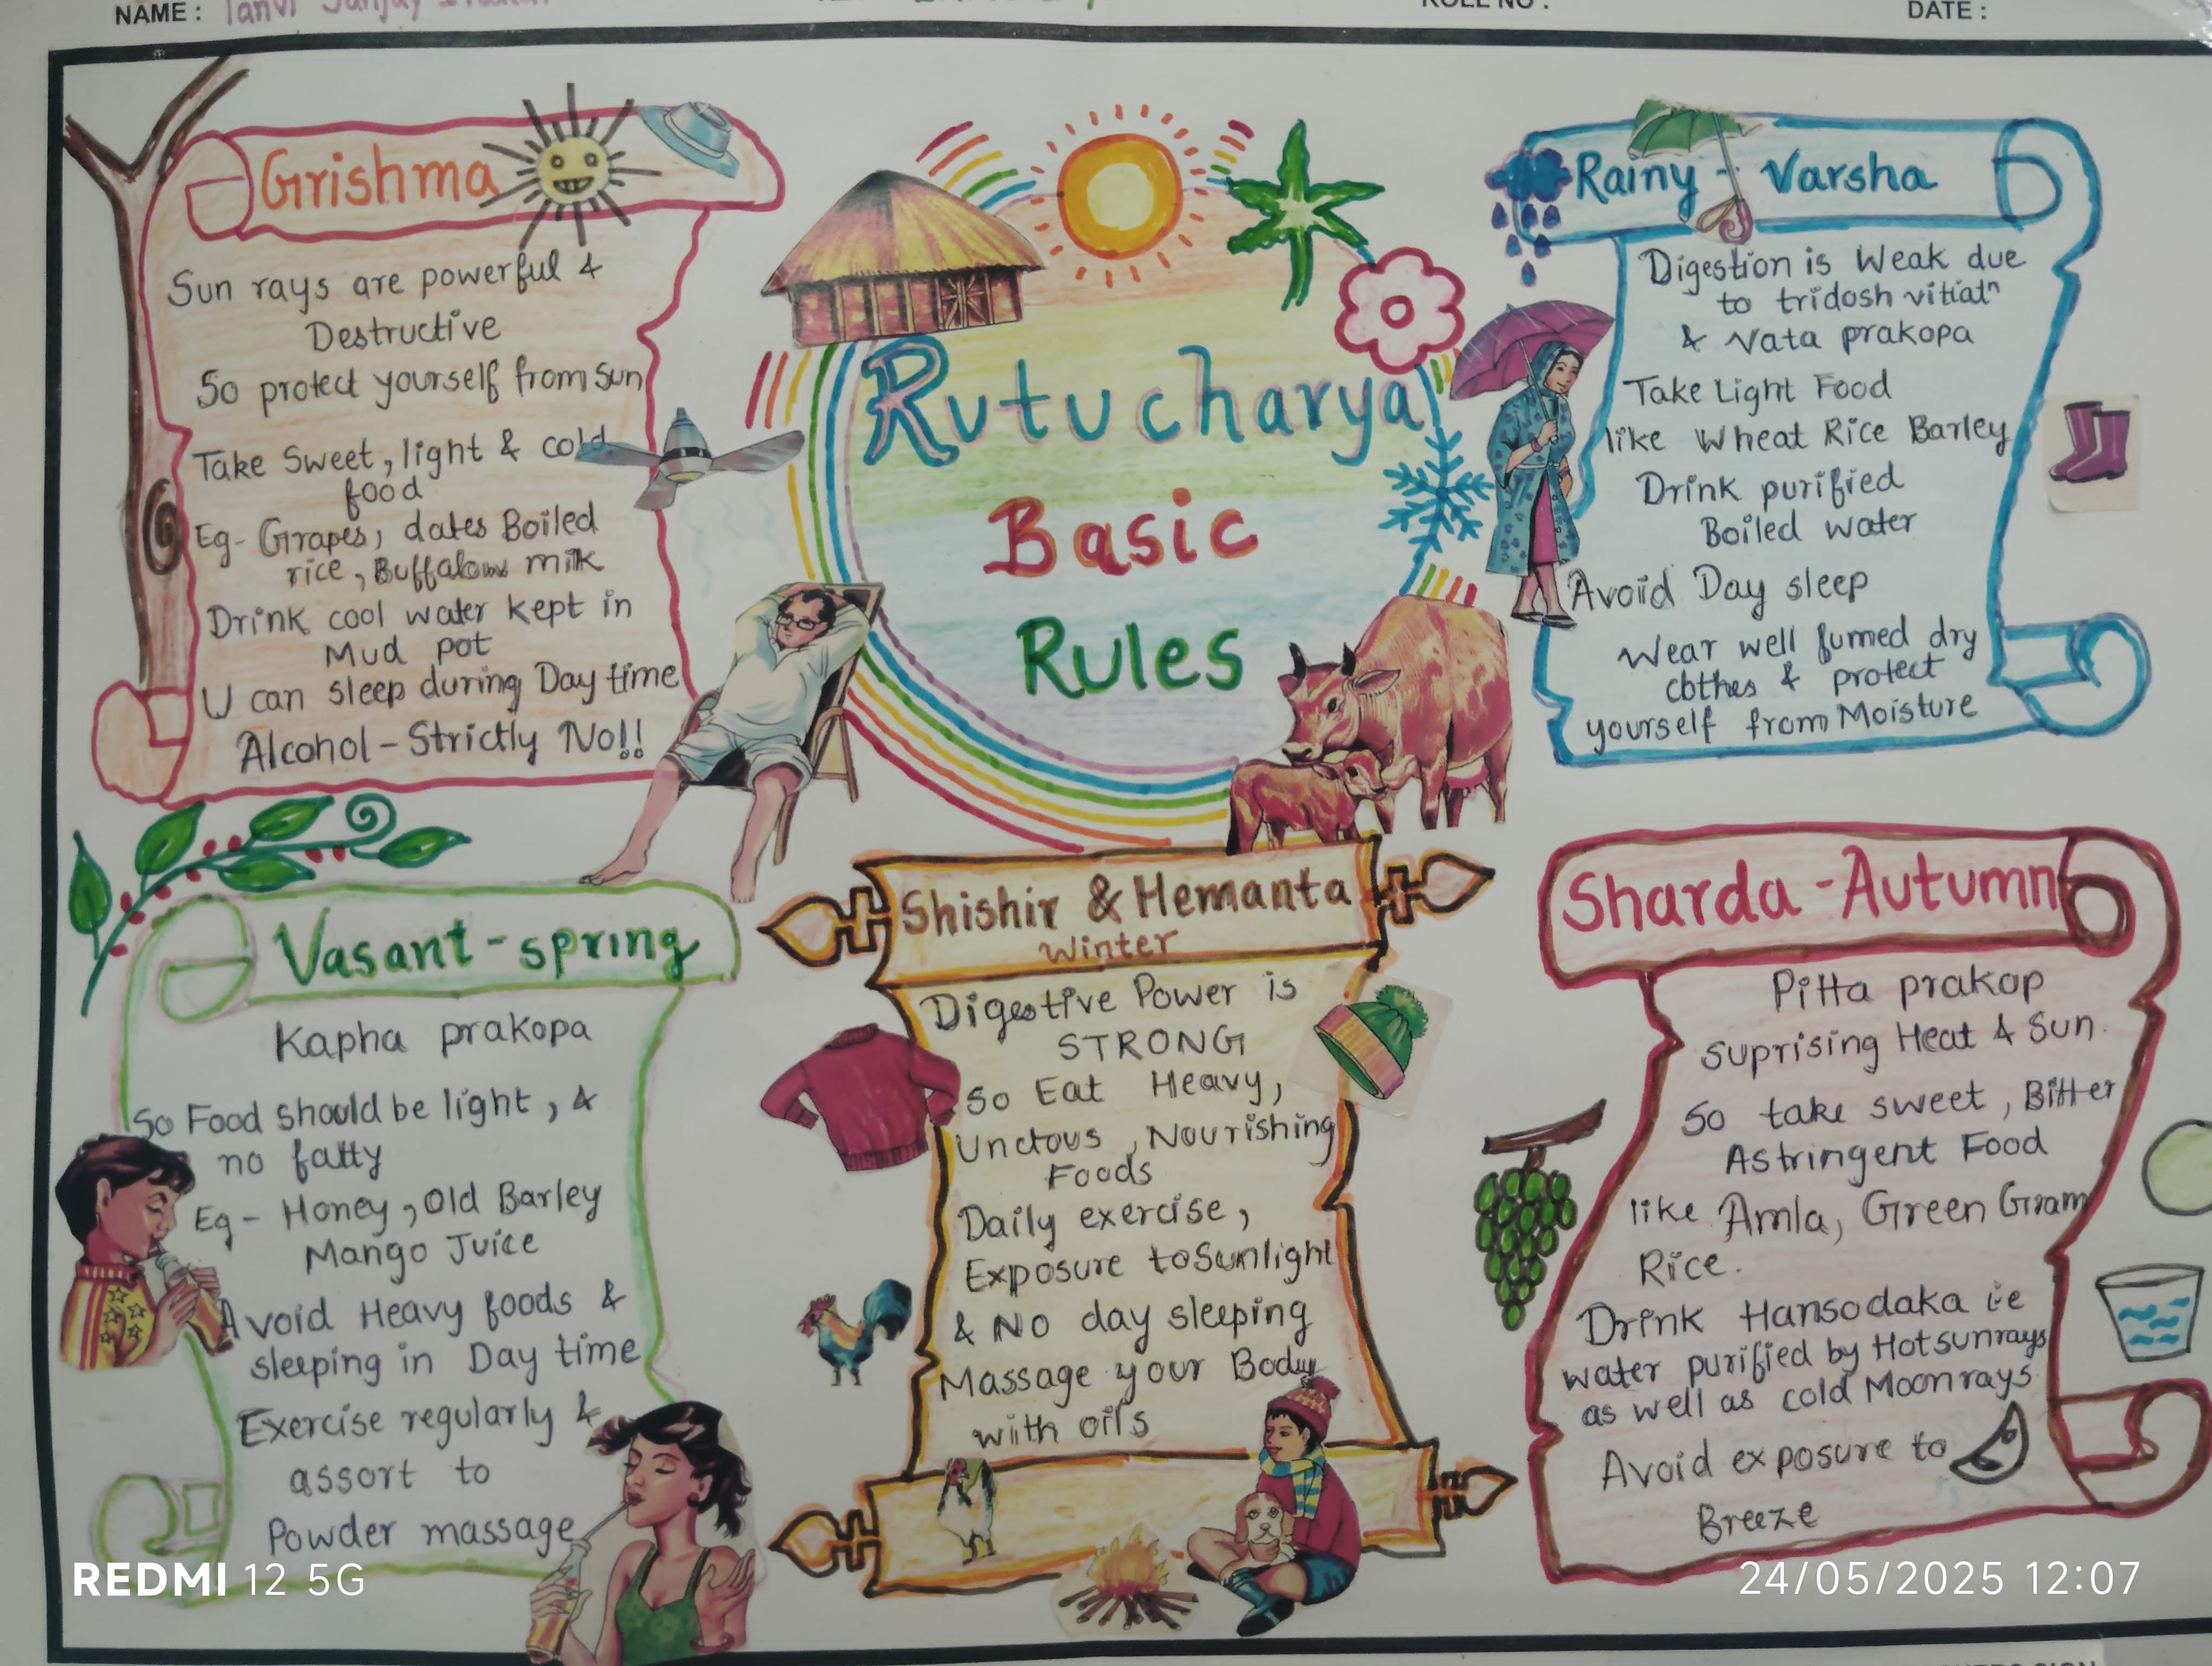 NAME :
ROLL NO :
DATE :
Grishma
Sun rays are powerful &
Destructive
So protect yourself from Sun
Take Sweet, light & cold
food
Eg- Grapes, dates Boiled
rice, Buffalows milk
Drink cool water kept in
Mud pot
U can sleep during Day time
Alcohol - Strictly No!!
Rutucharya
Basic
Rules
Rainy - Varsha
Digestion is Weak due
to tridosh vitiatⁿ
& Vata prakopa
Take Light Food
like Wheat Rice Barley
Drink purified
Boiled water
Avoid Day sleep
Wear well fumed dry
cbthes & protect
yourself from Moisture
Vasant - spring
Kapha prakopa
So Food should be light, &
no fatty
Eg - Honey, Old Barley
Mango Juice
Avoid Heavy foods &
sleeping in Day time
Exercise regularly &
assort to
Powder massage
Shishir & Hemanta
Winter
Digestive Power is
STRONG
So Eat Heavy,
Unctous, Nourishing
Foods
Daily exercise,
Exposure to Sunlight
& No day sleeping
Massage your Body
with oils
Sharda - Autumn
Pitta prakop
suprising Heat & Sun.
So take sweet, Bitter
Astringent Food
like Amla, Green Gram
Rice.
Drink Hansodaka i.e
water purified by Hot sunrays
as well as cold Moonrays
Avoid exposure to
Breeze
REDMI 12 5G
24/05/2025 12:07